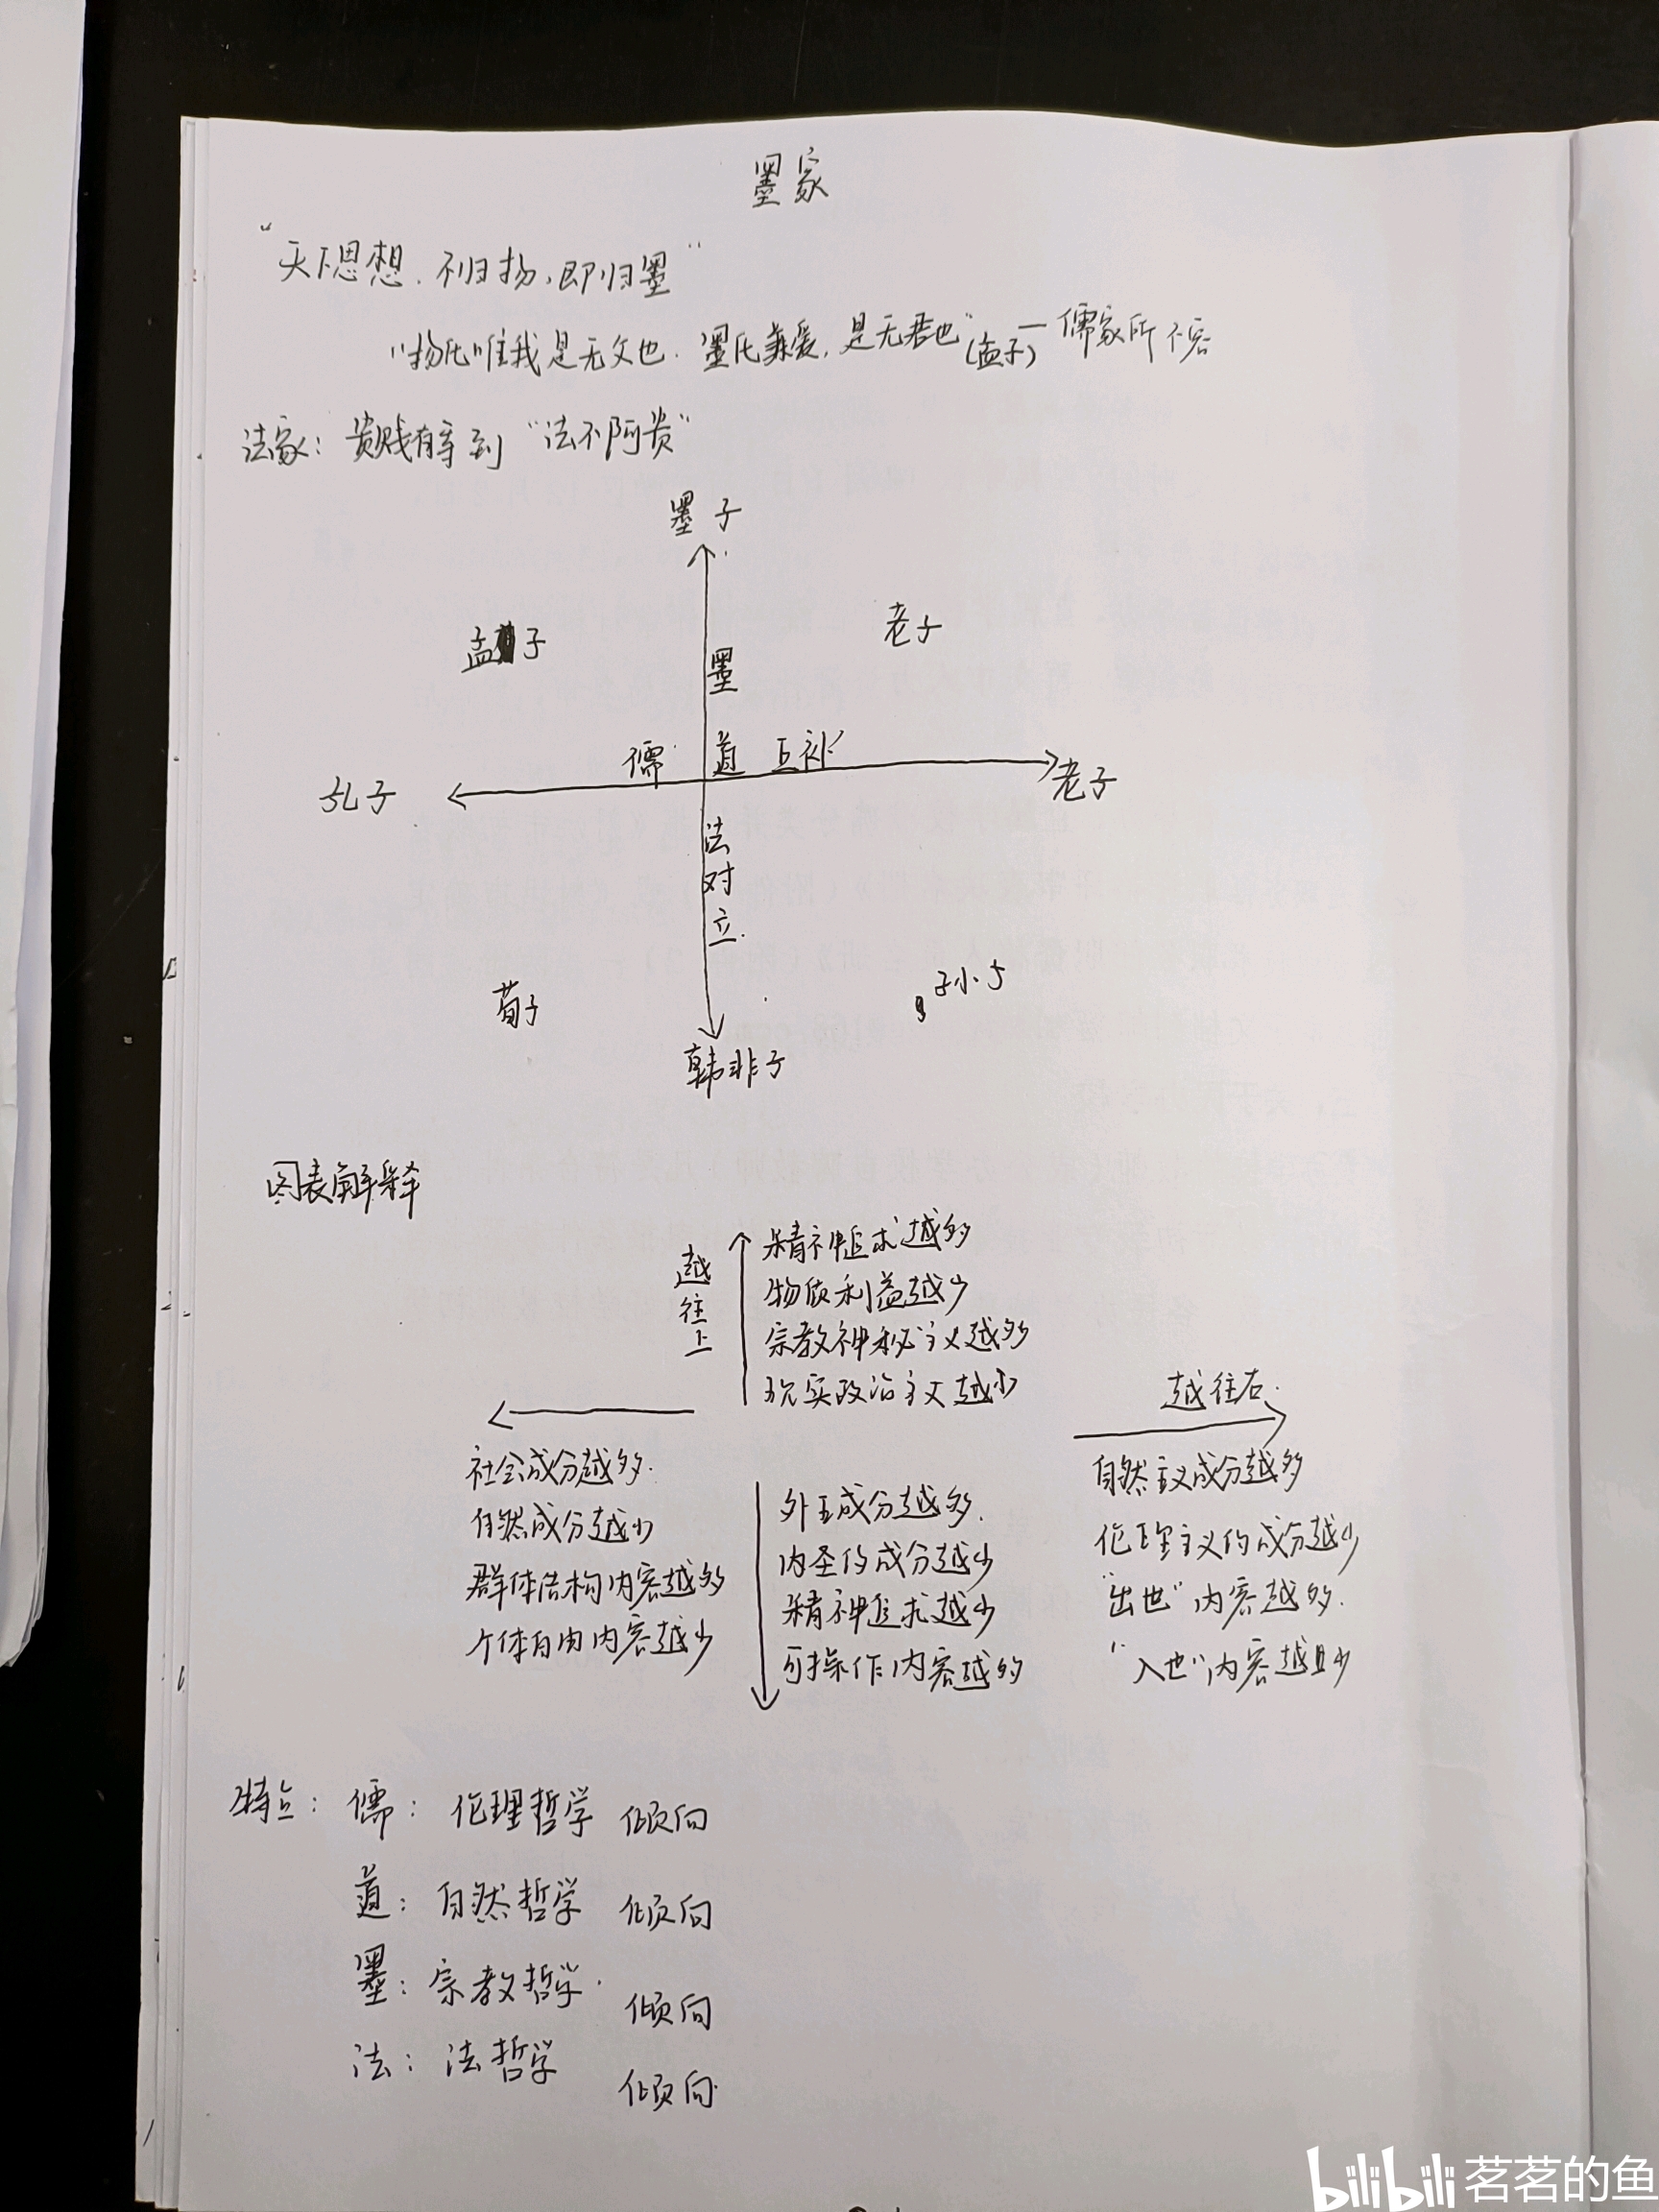 墨家
"天下思想．不归扬，即归墨"
"扬氏唯我是无父也．墨氏兼爱，是无君也"(孟子)—儒家所不容
法家：贵贱有等到"法不阿贵"
墨子
孟子
老子
墨
儒 道 互补
孔子
老子
法
对
立
荀子
韩非子
图表解释
越往上
精神追求越多
物质利益越少
宗教神秘主义越多
现实政治主义越少
越往右
社会成分越多
自然成分越少
群体结构内容越多
个体自由内容越少
外王成分越多
内圣的成分越少
精神追求越少
可操作内容越多
自然主义成分越多
伦理主义的成分越少
"出世"内容越多
"入世"内容越少
特点：儒：伦理哲学 倾向
道：自然哲学 倾向
墨：宗教哲学 倾向
法：法哲学 倾向
bilibili 茗茗的鱼